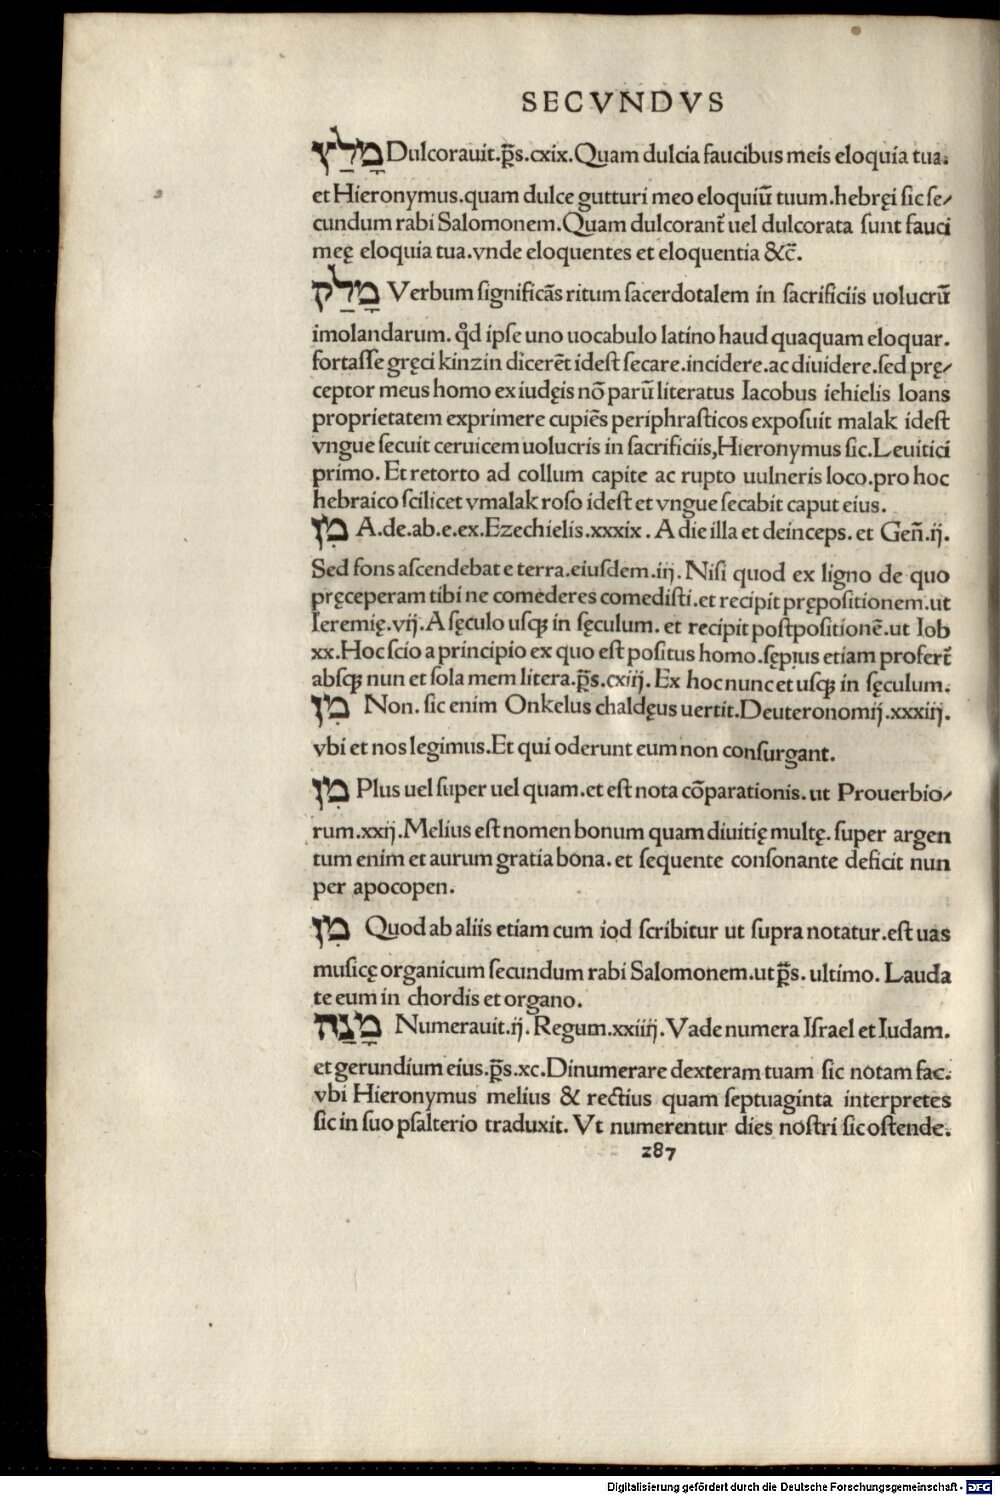 SECVNDVS
מָלַץ Dulcorauit.p̄s.cxix.Quam dulcia faucibus meis eloquia tua.
et Hieronymus.quam dulce gutturi meo eloquiū tuum.hebręi sic se/
cundum rabi Salomonem.Quam dulcorant᷑ uel dulcorata sunt fauci
meę eloquia tua.vnde eloquentes et eloquentia &c̄.
מָלַק Verbum significās ritum sacerdotalem in sacrificiis uolucrū
imolandarum. qd̵ ipse uno uocabulo latino haud quaquam eloquar.
fortasse gręci kinzin dicerēt idest secare.incidere.ac diuidere.sed prę/
ceptor meus homo ex iudęis nō parū literatus Iacobus iehielis loans
proprietatem exprimere cupiēs periphrasticos exposuit malak idest
vngue secuit ceruicem uolucris in sacrificiis,Hieronymus sic.Leuitici
primo. Et retorto ad collum capite ac rupto uulneris loco.pro hoc
hebraico scilicet vmalak roso idest et vngue secabit caput eius.
מִן A.de.ab.e.ex.Ezechielis.xxxix. A die illa et deinceps. et Geñ.ij.
Sed fons ascendebat e terra.eiusdem.iij. Nisi quod ex ligno de quo
pręceperam tibi ne comederes comedisti.et recipit prępositionem.ut
Ieremię.vij.A sęculo usqꝫ in sęculum. et recipit postpositionē.ut Iob
xx.Hoc scio a principio ex quo est positus homo.sępius etiam profert᷑
absqꝫ nun et sola mem litera.p̄s.cxiij. Ex hoc nunc et usqꝫ in sęculum.
מִן Non. sic enim Onkelus chaldęus uertit.Deuteronomij.xxxiij.
vbi et nos legimus.Et qui oderunt eum non consurgant.
מִן Plus uel super uel quam.et est nota cōparationis.ut Prouerbio/
rum.xxij.Melius est nomen bonum quam diuitię multę. super argen
tum enim et aurum gratia bona. et sequente consonante deficit nun
per apocopen.
מִן Quod ab aliis etiam cum iod scribitur ut supra notatur.est uas
musicę organicum secundum rabi Salomonem.ut p̄s. ultimo. Lauda
te eum in chordis et organo.
מָנָה Numerauit.ij. Regum.xxiiij.Vade numera Israel et Iudam.
et gerundium eius.p̄s.xc.Dinumerare dexteram tuam sic notam fac.
vbi Hieronymus melius & rectius quam septuaginta interpretes
sic in suo psalterio traduxit. Vt numerentur dies nostri sic ostende.
287
Digitalisierung gefördert durch die Deutsche Forschungsgemeinschaft - DFG